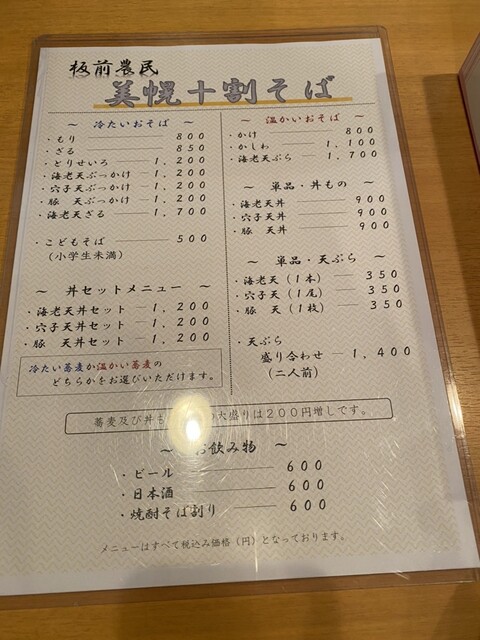 板前農民
美幌十割そば
～ 冷たいおそば ～
・もり 800
・ざる 850
・とりせいろ 1,200
・海老天ぶっかけ 1,200
・穴子天ぶっかけ 1,200
・豚 天ぶっかけ 1,200
・海老天ざる 1,700
・こどもそば 500
(小学生未満)
～ 丼セットメニュー ～
・海老天丼セット 1,200
・穴子天丼セット 1,200
・豚 天丼セット 1,200
冷たい蕎麦か温かい蕎麦の
どちらかをお選びいただけます。
～ 温かいおそば ～
・かけ 800
・かしわ 1,100
・海老天ぷら 1,700
～ 単品・丼もの ～
・海老天丼 900
・穴子天丼 900
・豚 天丼 900
～ 単品・天ぷら ～
・海老天(1本) 350
・穴子天(1尾) 350
・豚 天(1枚) 350
・天ぷら
盛り合わせ 1,400
(二人前)
蕎麦及び丼も 大盛りは200円増しです。
～ お飲み物 ～
・ビール 600
・日本酒 600
・焼酎そば割り 600
メニューはすべて税込み価格(円)となっております。